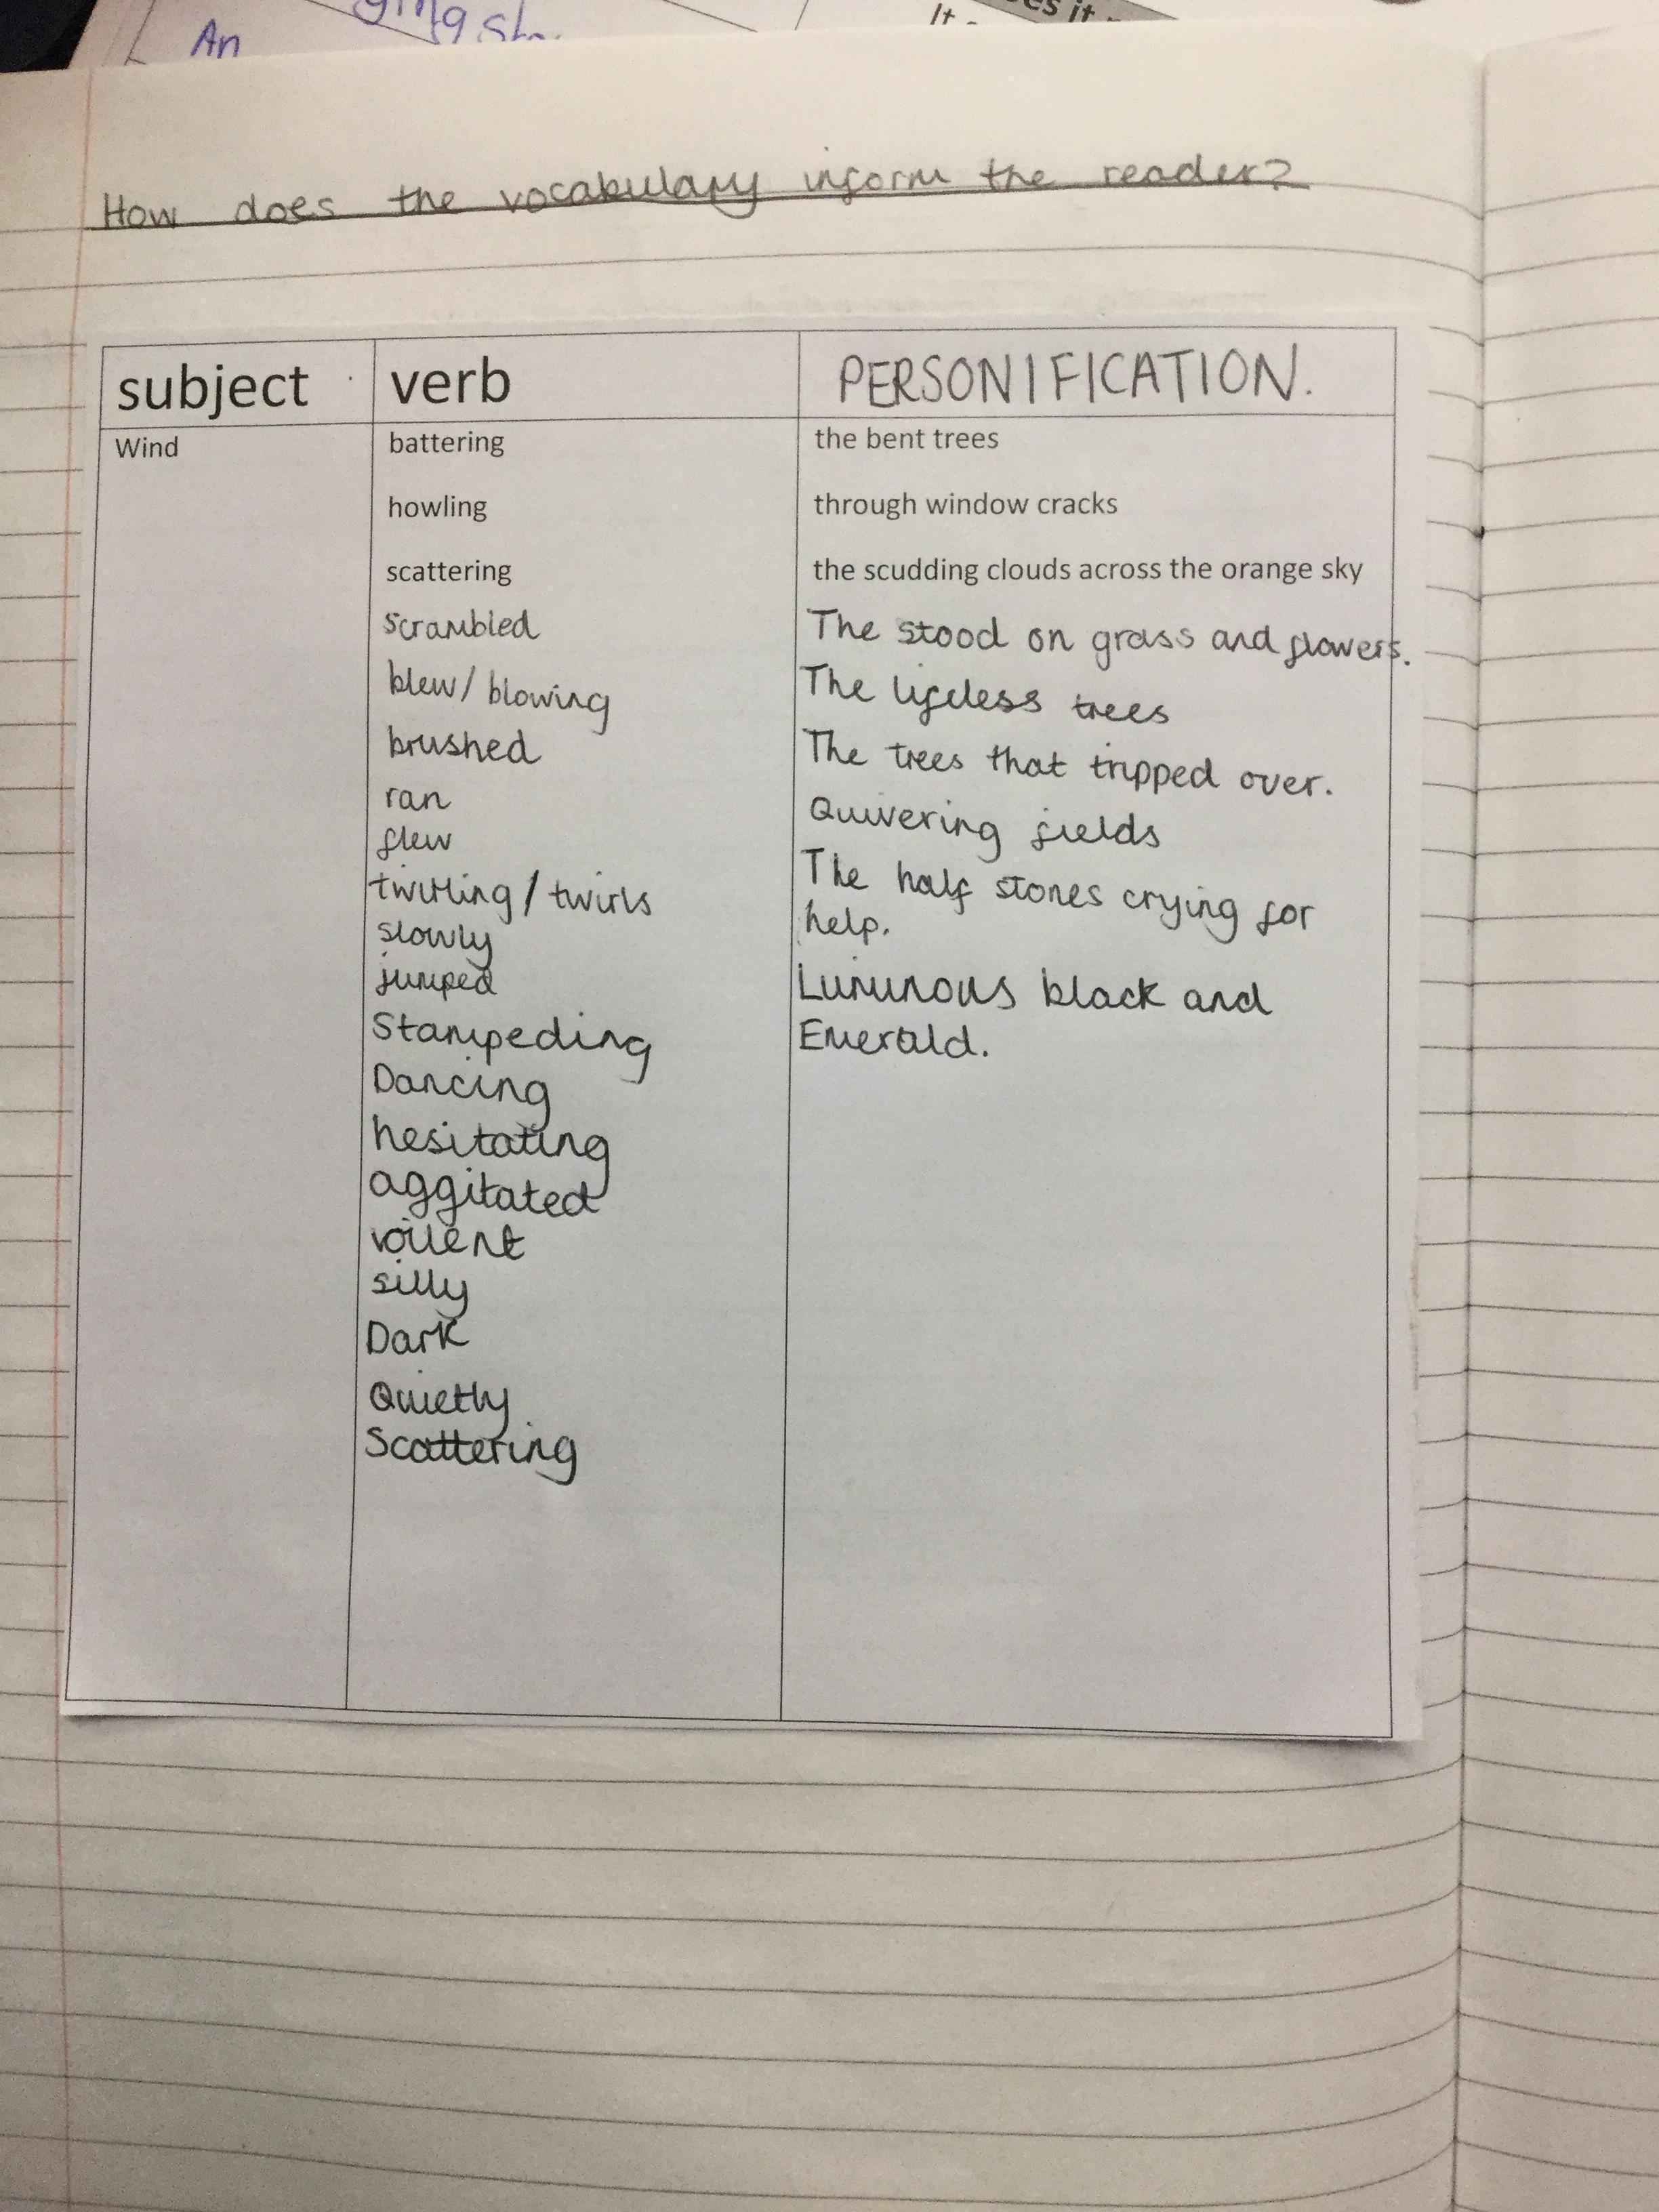 An
It
es it
How does the vocabulary inform the reader?
subject verb PERSONIFICATION.
Wind battering the bent trees
howling through window cracks
scattering the scudding clouds across the orange sky
scrambled The stood on grass and flowers.
blew/ blowing The lifeless trees
brushed The trees that tripped over.
ran Quivering fields
flew
twirling / twirls The half stones crying for
slowly help.
jumped Luminous black and
Stampeding Emerald.
Dancing
hesitating
aggitated
voilent
silly
Dark
Quietly
Scattering